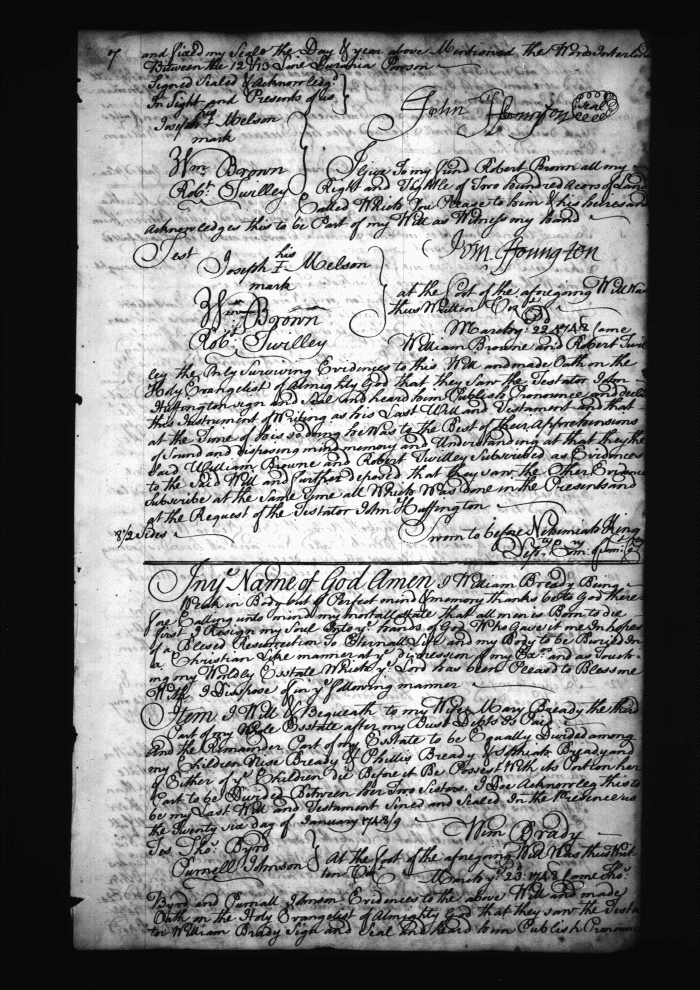 7 and fixed my Seale the Day & year above Mentioned the Words Interlin
Between the 12 & 13 Line Person
Signed Sealed & Acknowledg
In Sight and Presents of us
John Seal
Joseph I Melson
mark
Wm. Brown
Robt. Twilley
I give to my friend Robert Brown all my
Right and Tyttle of Two hundred Acors of Land
Called Which You Please to him & his heires and
Acknowledges this to be Part of my Will as Witness my hand
Test
his
Joseph I Melson
mark
Wm Brown
Robt. Twilley
at the foot of the aforegoing Will was
thus Written
22 1748 Came
William Browne and Robert Twil
ley the Only Surviving Evidences to this Will and made Oath on the
Holy Evangelist of Almighty God that they Saw the Testator John
Huffington sign and Seal and heard him Publish Pronounce and decl
this Instrument of Writing as his Last Will and Testament and that
at the Time of his so doing he was to the Best of their Apprehensions
of Sound and disposing mind memory and Understanding at that they the
Said William Browne and Robert Twilley Subscribed as Evidences
to the Said Will and further deposed that they saw the Other Evidence
Subscribe at the Same Time all Which Was Done in the Presents and
at the Request of the Testator John Huffington
8 1/2 Sides
Sworn to before Nehemiah King
In ye Name of God Amen I William Bready Being
Weak in Body but of Perfect mind & memory thanks be to God there
fore Calling unto mind my mortall state that all men is Born to die
first I Resign my Soul Into ye hands of God Who Gave it me In hopes
of a Blesed Resurrection To Eternall Life and my Body to be Buried In
a Christian Like manner at ye discression of my Exr. and as Touch
ing my Worldly Esstate Which ye Lord has been Pleased to Bless me
With I Dispose of in ye following manner
Item I Will & Bequeath to my Wife Mary Bready the third
Part of my Whole Esstate after my Just Debts is Paid
And the Remainder Part of my Esstate to be Equally Divided among
my Children Bready & Phillis Bready & Bready and
if Either of ye Children die Before it Be Posest With its Portion her
Part to be Divided Between her Two Sistors. I Doe Acknowleg this to
be my Last Will and Testament Sined and Sealed In the Presence us
the Twenty Six day of January 1748/9
Wim Brady
Tes Tho: Byrd
Purnell Johnson
At the foot of the aforegoing Will Was thus Writ
ten
March ye 23 1748 Came Tho:
Byrd and Purnall Johnson Evidences to the above Will and made
Oath on the Holy Evangelist of Almighty God that they saw the Testa
tor William Brady Sign and Seal and heard him Publish Pronounce